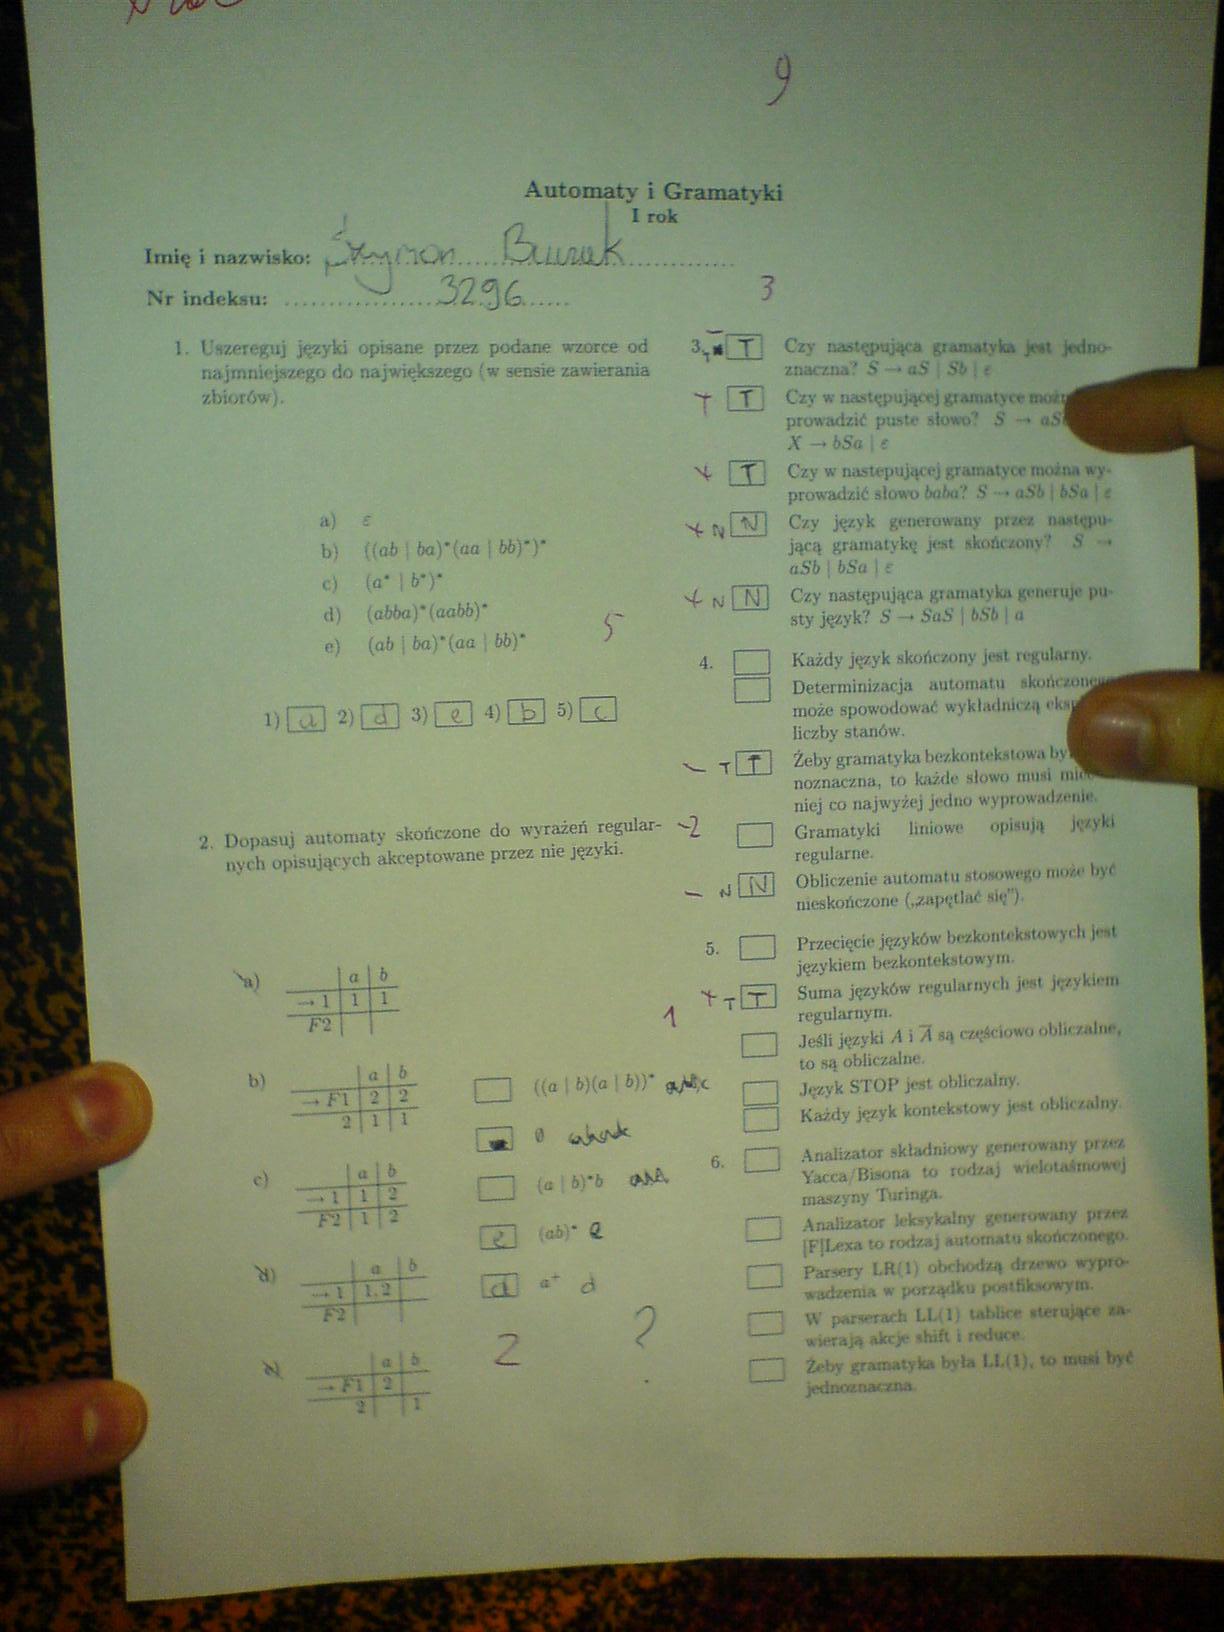 9
Automaty i Gramatyki
I rok
Imię i nazwisko: Szymon
Nr indeksu: 3296
3
1. Uszereguj języki opisane przez podane wzorce od
najmniejszego do największego (w sensie zawierania
zbiorów).
a) ε
b) ((ab | ba)*(aa | bb)*)*
c) (a* | b*)*
d) (abba)*(aabb)*
e) (ab | ba)*(aa | bb)*
5
1) a 2) d 3) e 4) b 5) c
2. Dopasuj automaty skończone do wyrażeń regular-
nych opisujących akceptowane przez nie języki.
a) a b
→ 1 1 1
F2
b) a b
→ F1 2 2
2 1 1
c) a b
→ 1 1 2
F2 1 2
d) a b
→ 1 1,2
F2
a b
→ F1 2
2 1
((a | b)(a | b))*
∅
(a | b)*b
e (ab)* e
d a+ d
2 ?
3. T T Czy następująca gramatyka jest jedno-
znaczna? S → aS | Sb | ε
+ T Czy w następującej gramatyce
prowadzić puste słowo? S →
X → bSa | ε
+ T Czy w nastepującej gramatyce można wy-
prowadzić słowo baba? S → aSb | bSa | ε
+ N N Czy język generowany przez następu-
jącą gramatykę jest skończony? S →
aSb | bSa | ε
+ N N Czy następująca gramatyka generuje pu-
sty język? S → SaS | bSb | a
4. Każdy język skończony jest regularny.
Determinizacja automatu skończonego
może spowodować wykładniczą
liczby stanów.
- T T Żeby gramatyka bezkontekstowa
noznaczna, to każde słowo musi
niej co najwyżej jedno wyprowadzenie.
-2 Gramatyki liniowe opisują języki
regularne.
- N N Obliczenie automatu stosowego może być
nieskończone („zapętlać się”).
5. Przecięcie języków bezkontekstowych jest
językiem bezkontekstowym.
1 + T T Suma języków regularnych jest językiem
regularnym.
Jeśli języki A i A̅ są częściowo obliczalne,
to są obliczalne.
Język STOP jest obliczalny.
Każdy język kontekstowy jest obliczalny.
6. Analizator składniowy generowany przez
Yacca/Bisona to rodzaj wielotaśmowej
maszyny Turinga.
Analizator leksykalny generowany przez
[F]Lexa to rodzaj automatu skończonego.
Parsery LR(1) obchodzą drzewo wypro-
wadzenia w porządku postfiksowym.
W parserach LL(1) tablice sterujące za-
wierają akcje shift i reduce.
Żeby gramatyka była LL(1), to musi być
jednoznaczna.